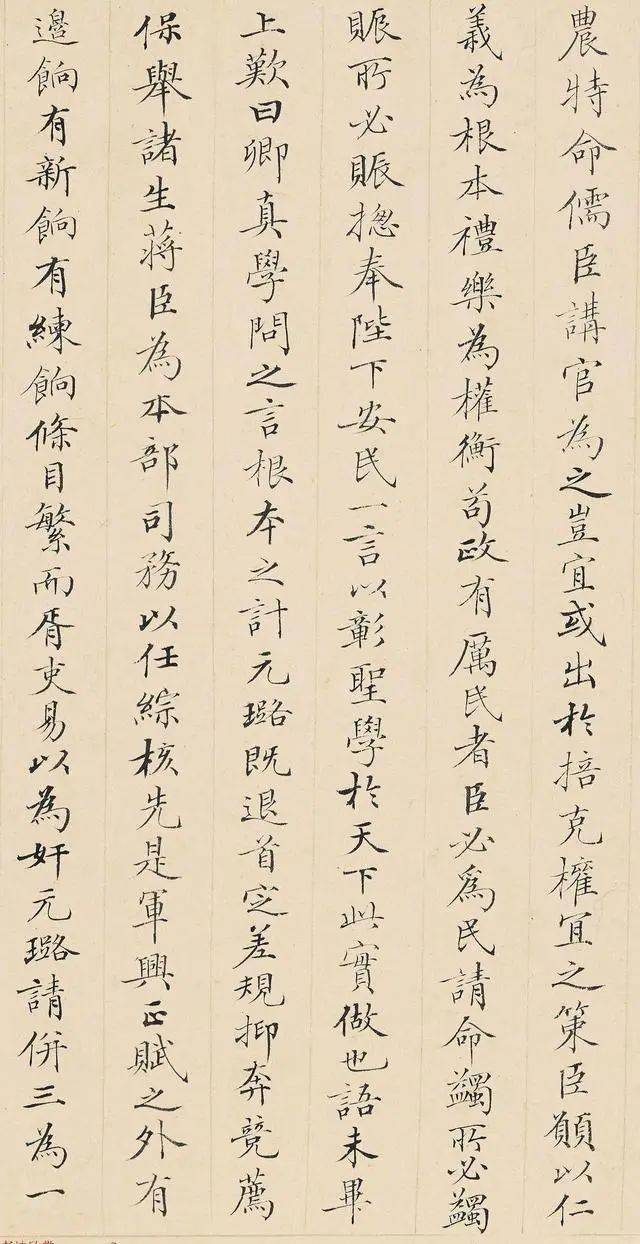 農特命儒臣講官為之豈宜或出於掊克權宜之策臣願以仁
義為根本禮樂為權衡苟政有厲民者臣必為民請命蠲所必蠲
賑所必賑揔奉陛下安民一言以彰聖學於天下此實做也語未畢
上歎曰卿真學問之言根本之計元璐既退首定差規抑奔競薦
保舉諸生蔣臣為本部司務以任綜核先是軍興正賦之外有
邊餉有新餉有練餉條目繁而胥吏易以為奸元璐請併三為一